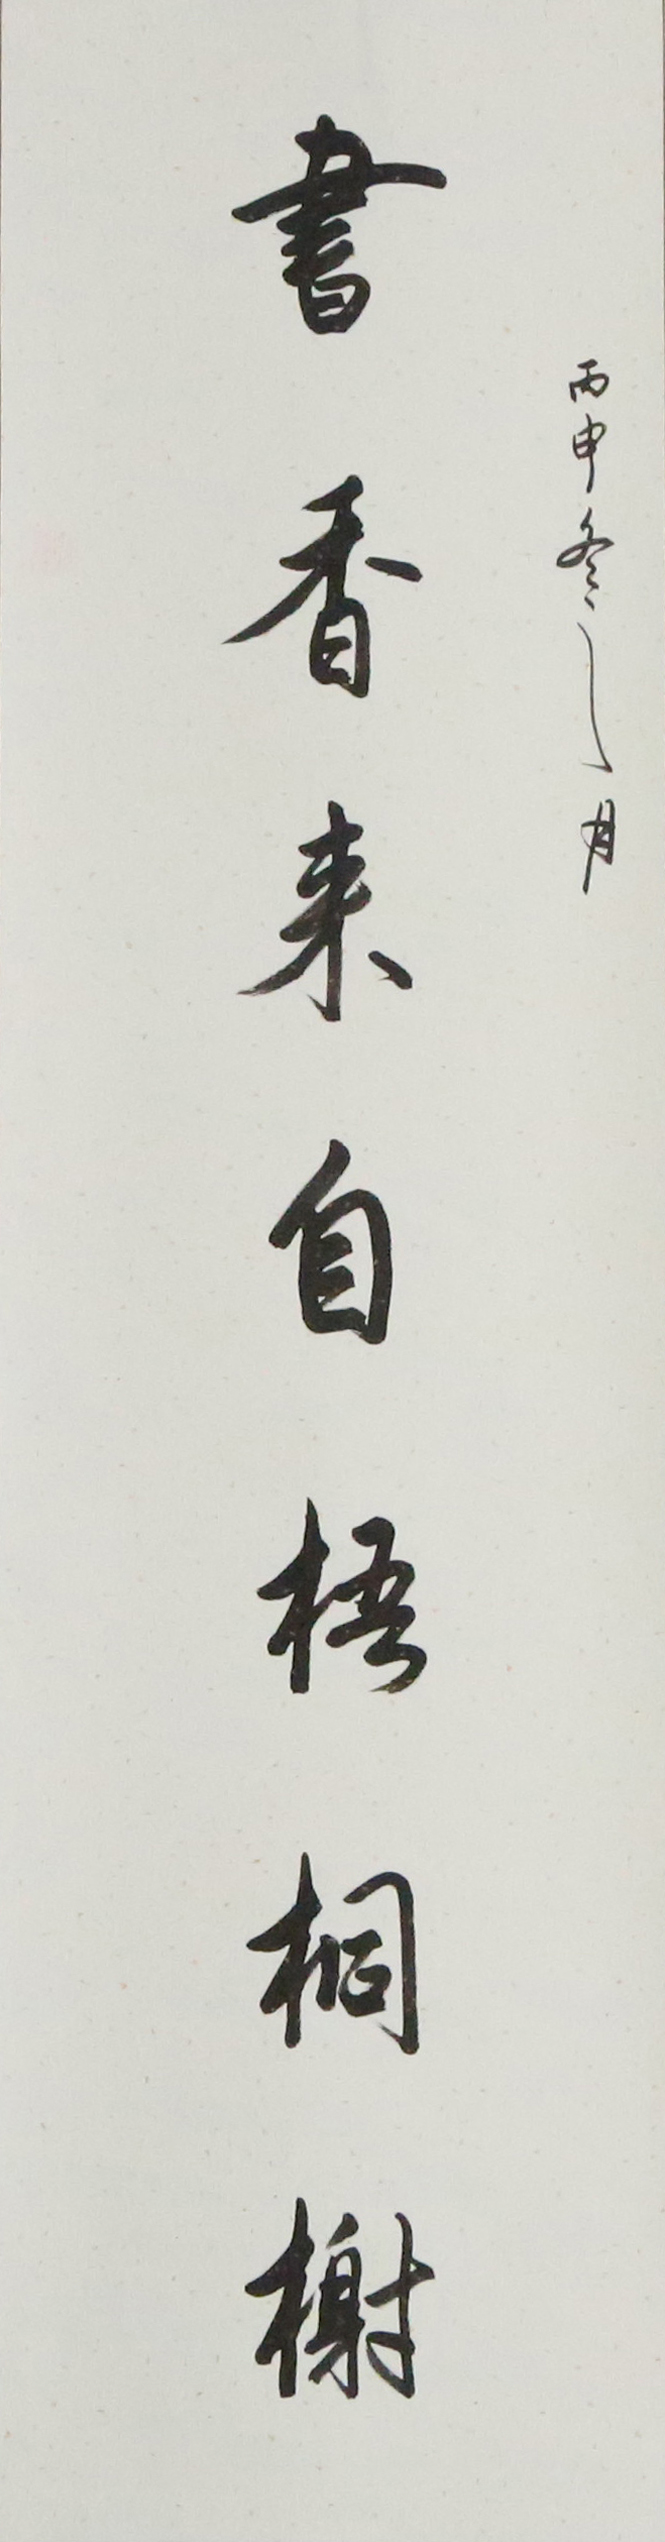 丙申冬之月
書香来自梧桐榭